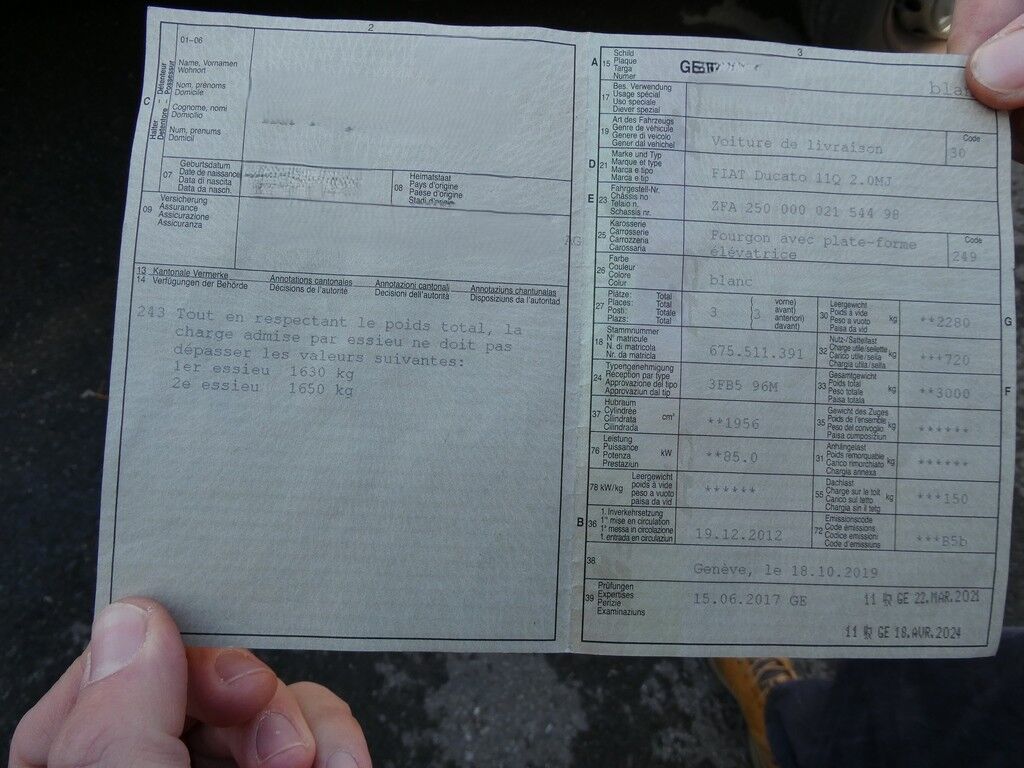 2
01-06
Name, Vornamen
Wohnort
Nom, prénoms
Domicile
Cognome, nomi
Domicilio
Num, prenums
Domicil
C
Halter Détenteur
Detentore Possessur
07
Geburtsdatum
Date de naissance
Data di nascita
Data da nasch.
08
Heimatstaat
Pays d'origine
Paese d'origine
Stadi d'origine
09
Versicherung
Assurance
Assicurazione
Assicuranza
13 Kantonale Vermerke Annotations cantonales Annotazioni cantonali Annotaziuns chantunalas
14 Verfügungen der Behörde Décisions de l'autorité Decisioni dell'autorità Dispositiuns da l'autoritad
243 Tout en respectant le poids total, la
charge admise par essieu ne doit pas
dépasser les valeurs suivantes:
1er essieu 1630 kg
2e essieu 1650 kg
3
A 15
Schild
Plaque
Targa
Numer
GE
blanc
17
Bes. Verwendung
Usage spécial
Uso speciale
Diever spezial
19
Art des Fahrzeugs
Genre de véhicule
Genere di veicolo
Gener dal vehichel
Voiture de livraison
Code
30
D 21
Marke und Typ
Marque et type
Marca e tipo
Marca e tip
FIAT Ducato 11Q 2.0MJ
E 23
Fahrgestell-Nr.
Châssis no
Telaio n.
Schassis nr.
ZFA 250 000 021 544 98
25
Karosserie
Carrosserie
Carrozzeria
Carossaria
Fourgon avec plate-forme
élévatrice
Code
249
26
Farbe
Couleur
Colore
Colur
blanc
27
Plätze: Total
Places: Total
Posti: Totale
Plazs: Total
3
(3
vorne)
avant)
anteriori)
davant)
30
Leergewicht
Poids à vide
Peso a vuoto
Paisa da vid
kg
**2280
G
18
Stammnummer
N° matricule
N. di matricola
Nr. da matricla
675.511.391
32
Nutz-/Sattellast
Charge utile/sellette
Carico utile/sella
Chargia utila/sella
kg
***720
24
Typengenehmigung
Réception par type
Approvazione del tipo
Approvaziun dal tip
3FB5 96M
33
Gesamtgewicht
Poids total
Peso totale
Paisa totala
kg
**3000
F
37
Hubraum
Cylindrée
Cilindrata
Cilindrada
cm³
**1956
35
Gewicht des Zuges
Poids de l'ensemble
Peso del convoglio
Paisa cumposiziun
kg
******
76
Leistung
Puissance
Potenza
Prestaziun
kW
**85.0
31
Anhängelast
Poids remorquable
Carico rimorchiato
Chargia annexa
kg
******
78 kW/kg
Leergewicht
poids à vide
peso a vuoto
paisa da vid
******
55
Dachlast
Charge sur le toit
Carico sul tetto
Chargia sin il tetg
kg
***150
B 36
1. Inverkehrsetzung
1re mise en circulation
1a messa in circolazione
1. entrada en circulaziun
19.12.2012
72
Emissionscode
Code émissions
Codice emissioni
Code d'emissiuns
***B5b
38
Genève, le 18.10.2019
39
Prüfungen
Expertises
Perizie
Examinaziuns
15.06.2017 GE
11 GE 22.MAR.2021
11 GE 18.AVR.2024